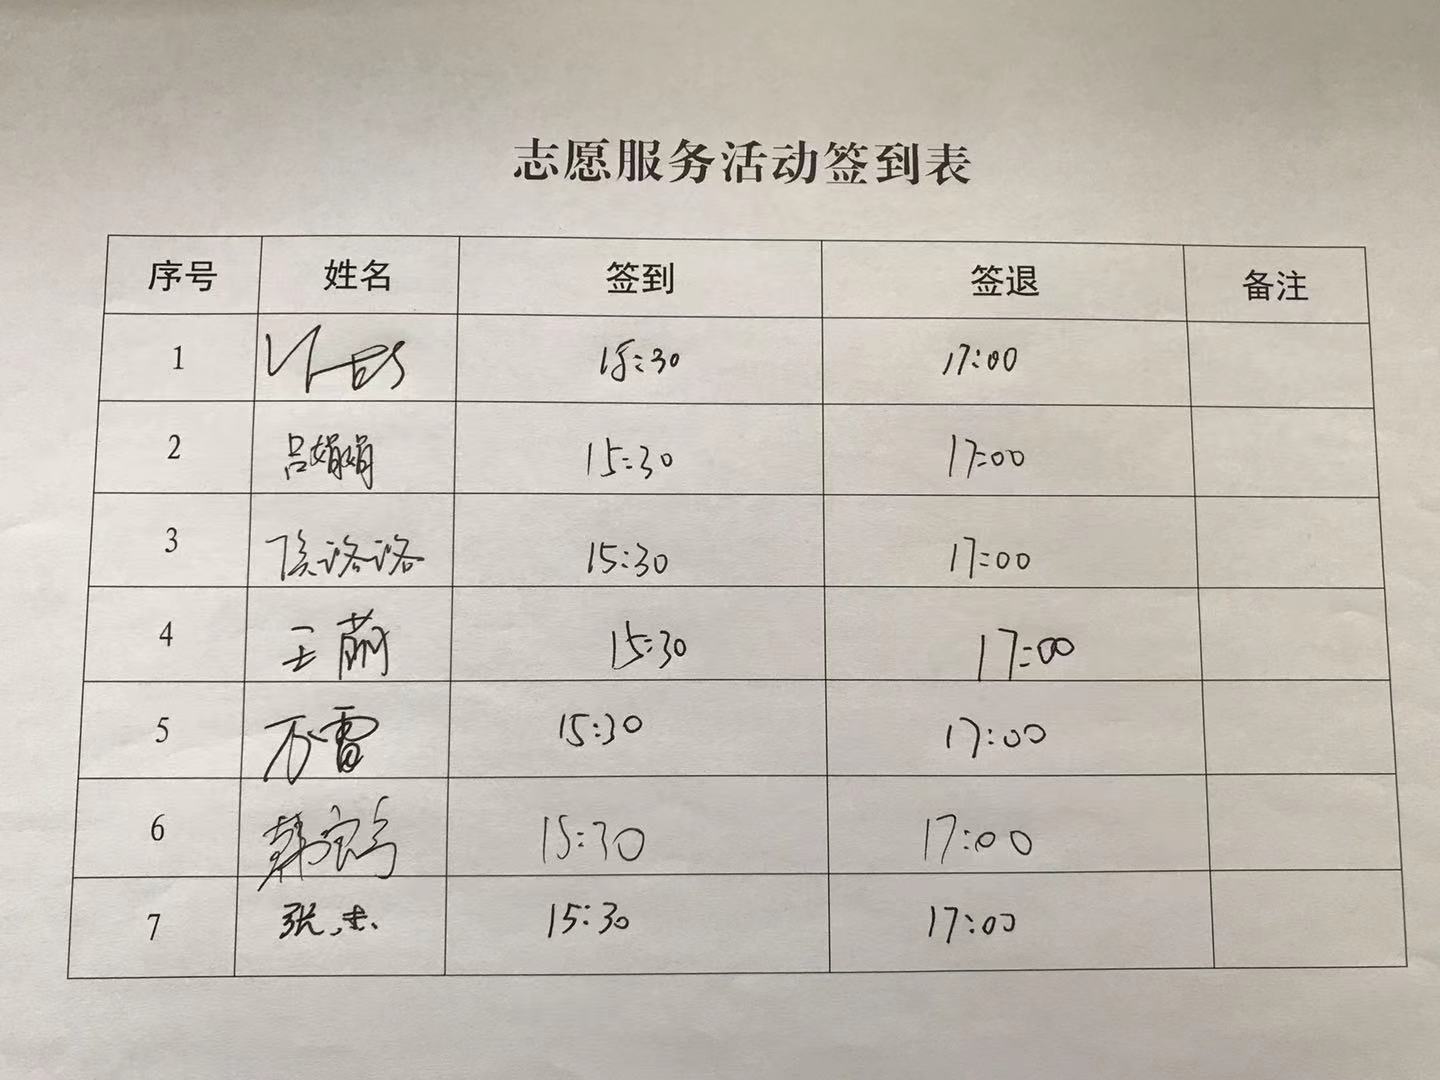 志愿服务活动签到表
序号 姓名 签到 签退 备注
1 15:30 17:00
2 吕娟娟 15:30 17:00
3 侯洛洛 15:30 17:00
4 王萌 15:30 17:00
5 万雷 15:30 17:00
6 韩 15:30 17:00
7 张 15:30 17:00